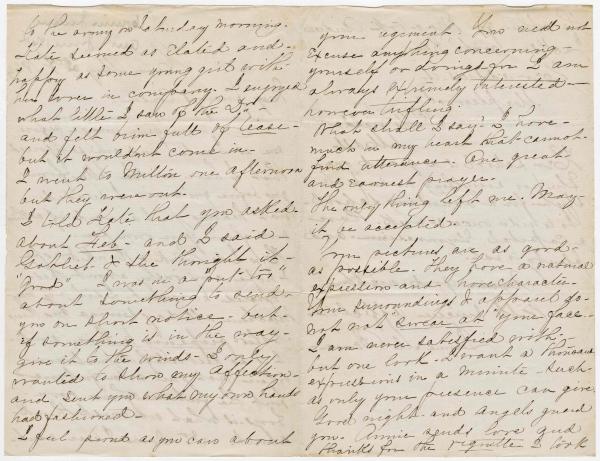 to the army on Saturday morning.
Kate seemed as Elated and
happy as some young girl with
her lover in company. I enjoyed
what little I saw of the Dr.
and felt brim full of tease
but it wouldn't come in.
I went to Milton one afternoon
but they were out.
I told Kate that you asked
about Feb. and I said
& she thought it
"good" I was in a "put-too"
about something to send
you on short notice. but
if something is in the way
give it to the winds. I only
wanted to show my affection
and sent you what my own hands
had fashioned.
I feel proud as you can about
your regiment. You need not
Excuse anything concerning
yourself or doings for I am
always extremely interested
however trifling.
What shall I say. I have
much in my heart that cannot
find utterance. One great
and Earnest prayer.
The only thing left me. May
it be accepted.
Your pictures are as good
as possible. They have a natural
expression and have character
Your surroundings & apparel do
not not "swear at" your face.
I am never satisfied with
but one look. I want a thousand
expressions in a minute. Such
as only your presence can give.
Good night and Angels guard
you. Annie sends love and
thanks for the vignette I look